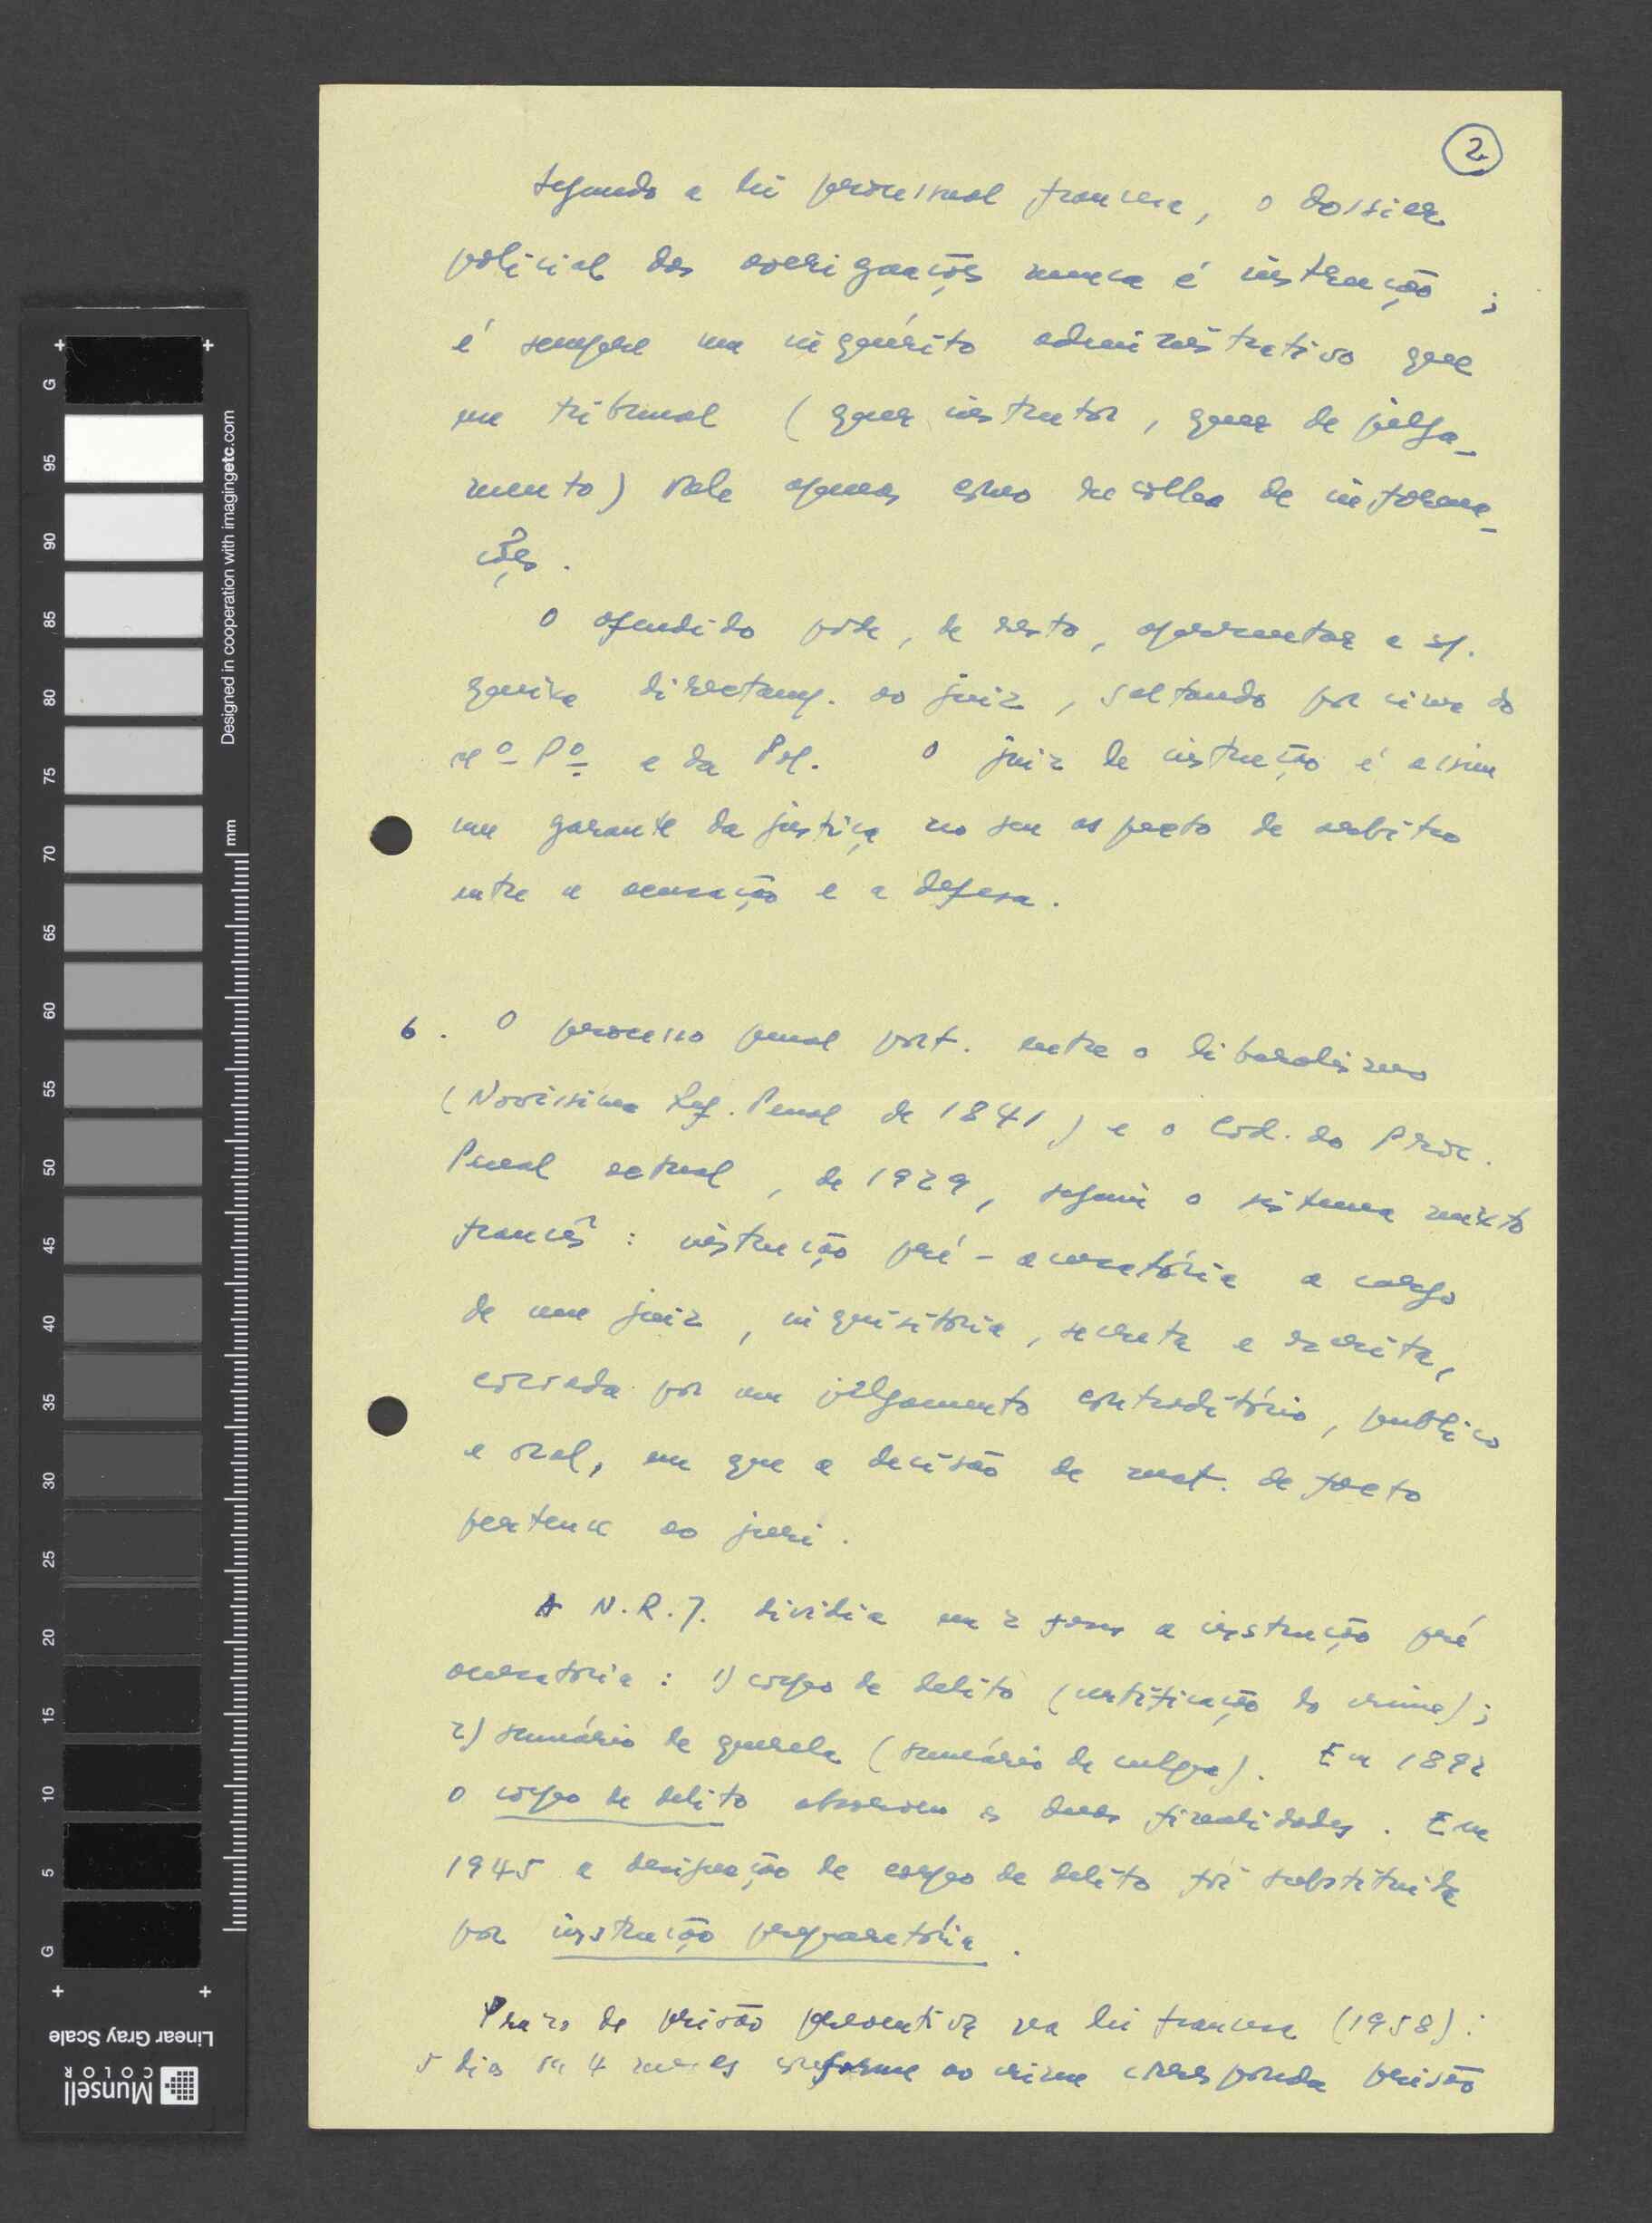 2.
Segundo a lei processual francesa, o dossier
policial das averiguações nunca é instrução ;
é sempre um inquérito administrativo que
em tribunal ( quer instrutor , quer de julga-
mento) vale apenas como recolha de informa-
ções .
O ofendido pode , de resto , apresentar a sp.
queixa directamp. ao juiz , saltando por cima do
Mº Pº e da Pol. O juiz de instrução é assim
um garante da justiça no seu aspecto de arbitro
entre a acusação e a defesa .
6 . O processo penal port. entre o liberalismo
(Novissima Ref. Penal de 1841) e o Cod. do Proc.
Penal actual , de 1929 , seguiu o sistema mixto
francês : instrução pré - acusatória a cargo
de um juiz , inquisitória , secreta e escrita ,
coroada por um julgamento contraditório , publico
e oral , em que a decisão de mat. de facto
pertence ao juri .
A N.R.J. dividia em 2 fases a instrução pré
acusatória : 1) corpo de delito (certificação do crime) ;
2) sumário de querela (sumário de culpa) . Em 1892
o corpo de delito absorveu as duas finalidades . Em
1945 a designação de corpo de delito foi substituida
por instrução preparatória .
Prazo de prisão preventiva na lei francesa (1958) :
5 dias ou 4 meses conforme ao crime corresponda prisão
G
95
90
85
80
75
70
65
60
55
50
45
40
35
30
25
20
15
10
5
G
mm
Designed in cooperation with imagingetc.com
Linear Gray Scale
Munsell
COLOR